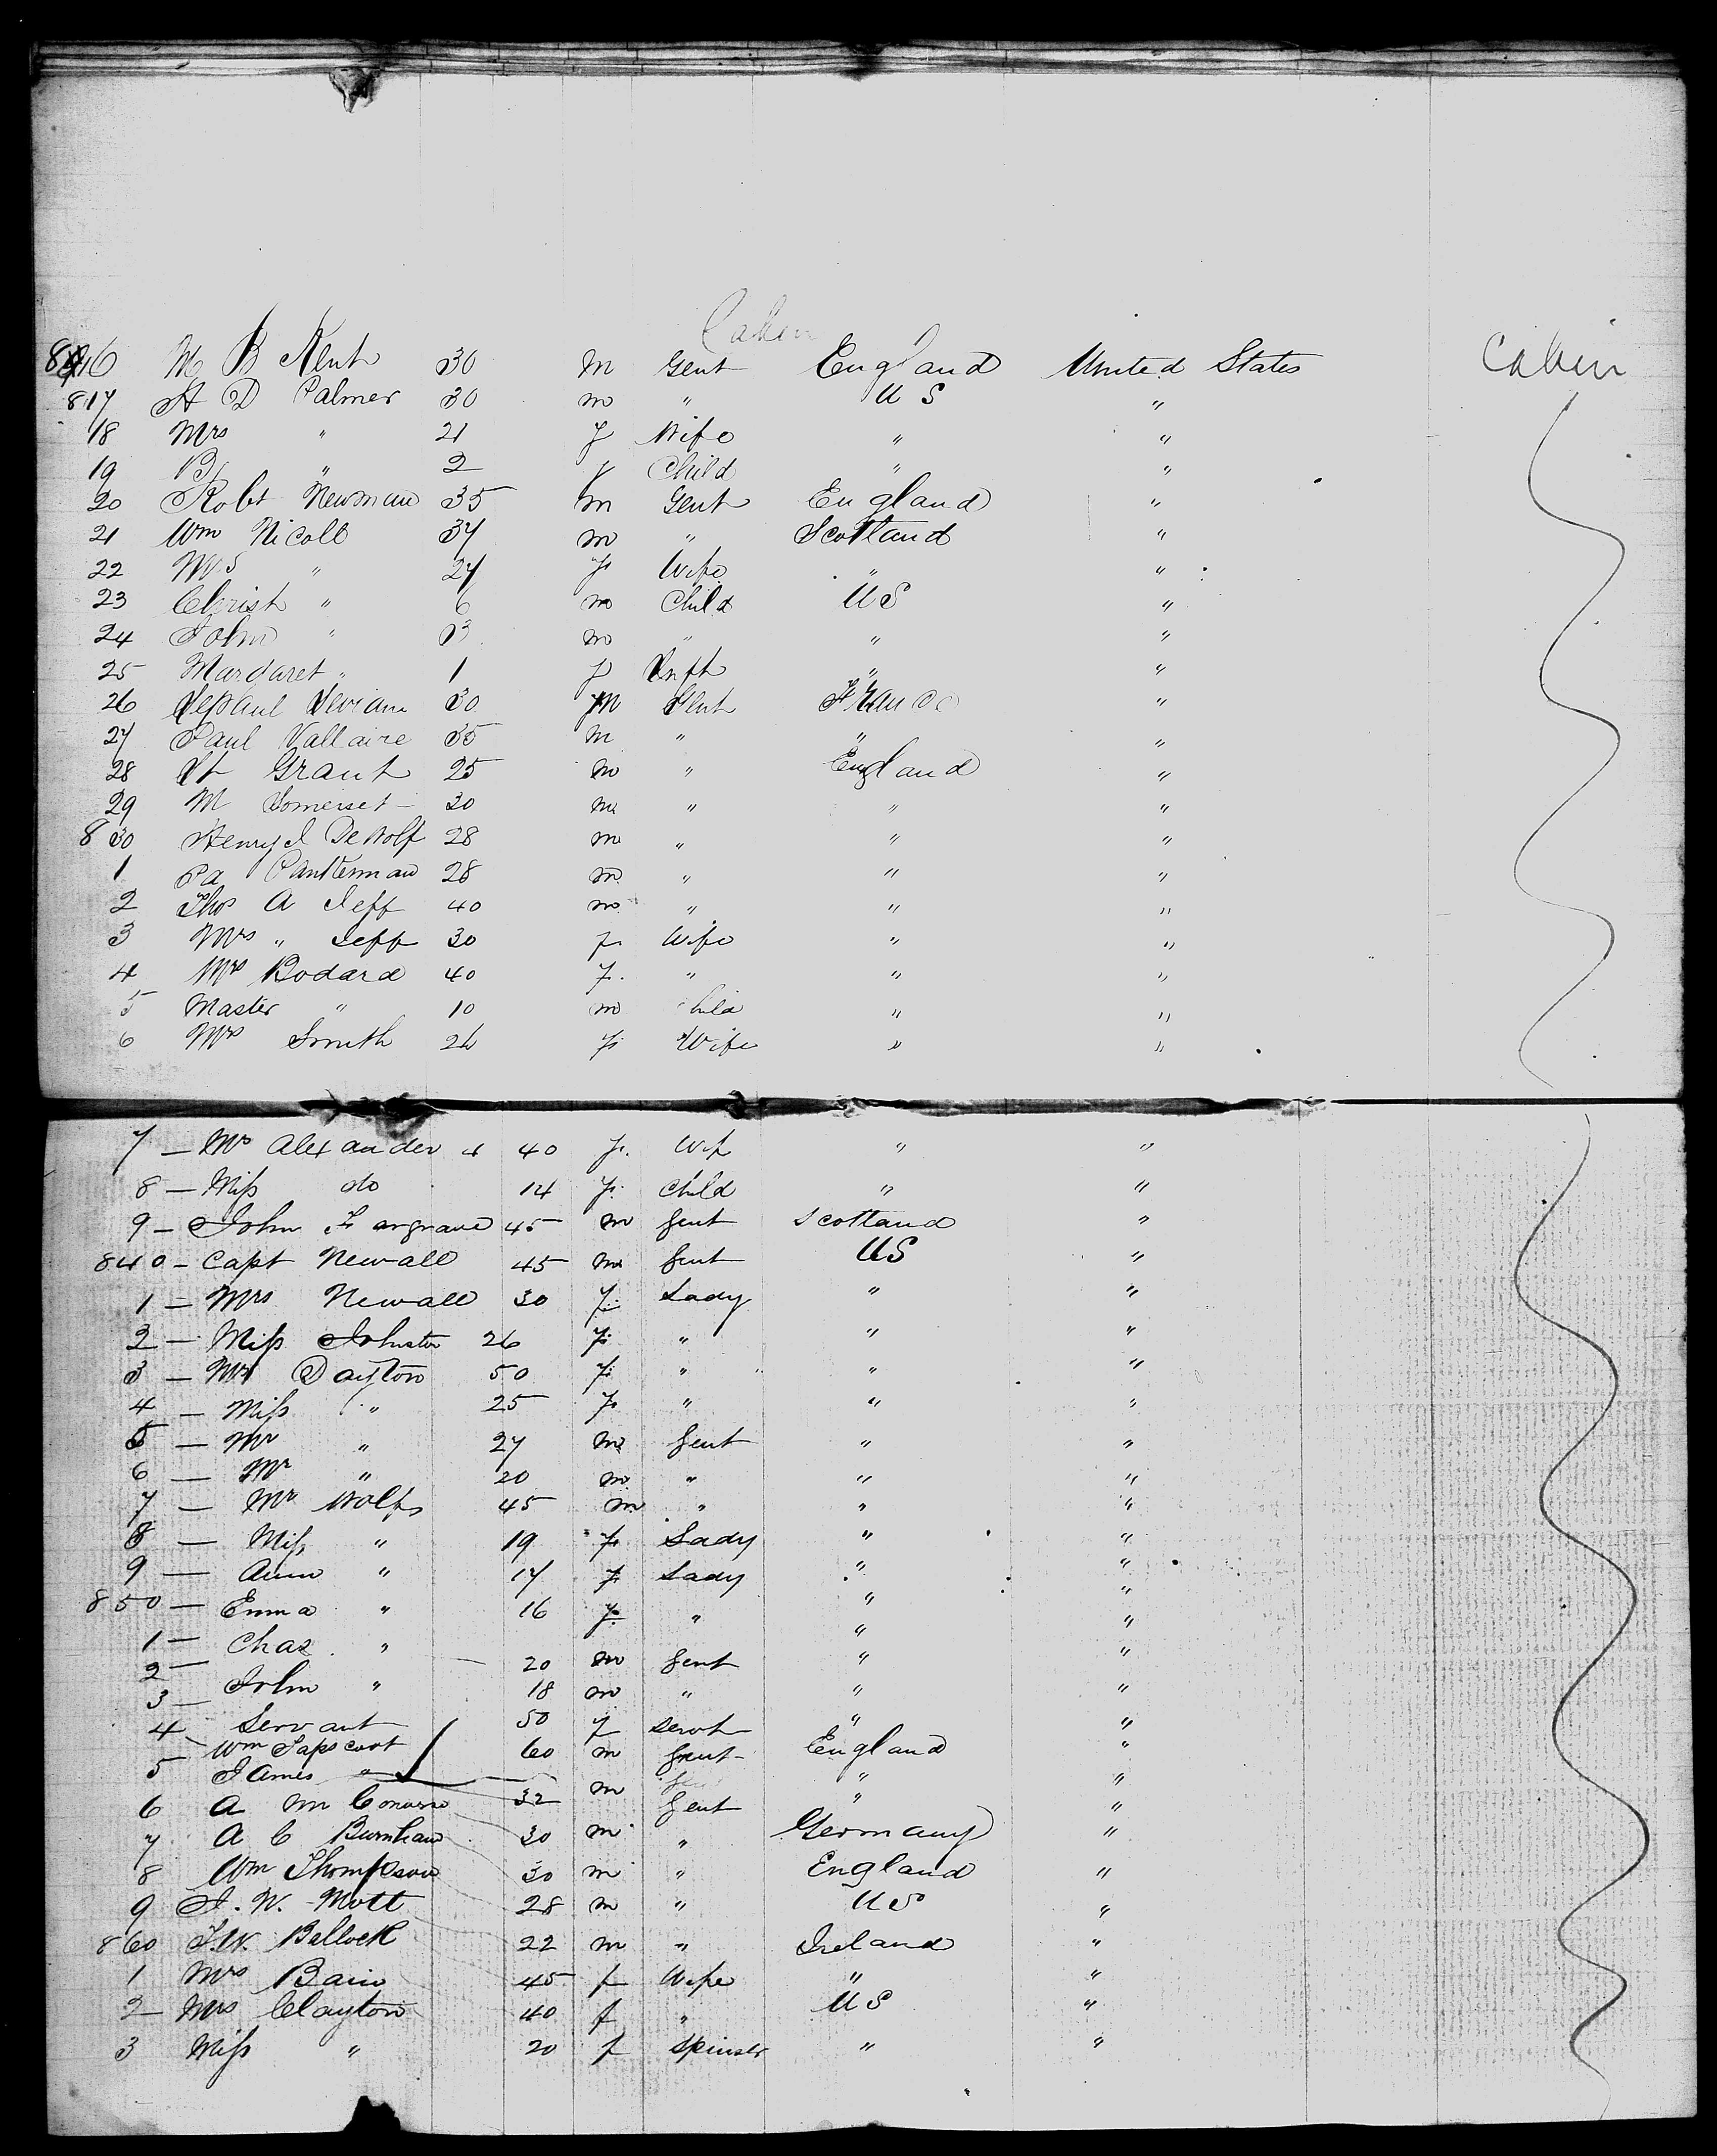 Cabin
816 M B Kent 30 m Gent England United States Cabin
817 A D Palmer 30 m " U S "
18 Mrs " 21 f Wife " "
19 " 2 f Child " "
20 Robt Newman 35 m Gent England "
21 Wm Nicoll 34 m " Scotland "
22 Mrs " 27 f Wife " "
23 Christ " 6 m Child US "
24 John " 3 m " " "
25 Margaret " 1 f Inft " "
26 30 m Gent France "
27 Paul Vallaire 35 m " " "
28 Grant 25 m " England "
29 M Somerset 30 m " " "
830 Henry J DeWolf 28 m " " "
1 28 m " " "
2 Thos A Jeff 40 m " " "
3 Mrs " Jeff 30 f Wife " "
4 Mrs Bodard 40 f " " "
5 Master " 10 m Child " "
6 Mrs Smith 26 f Wife " "
7 — Mrs Alexander 40 f. Wif " "
8 — Miss do 14 f. Child " "
9 — John Hargrave 45 m Gent Scotland "
840 — Capt Newall 45 m Gent US "
1 — Mrs Newall 30 f. Lady " "
2 — Miss Johnston 26 f. " " "
3 — Mrs Dayton 50 f. " " "
4 — Miss " 25 f " " "
5 — Mr " 27 m Gent " "
6 — Mr " 20 m " " "
7 — Mr Wolfs 45 m " " "
8 — Miss " 19 f Lady " "
9 — Ann " 17 f Lady " "
850 — Emma " 16 f. " " "
1 — Chas " 20 m Gent " "
2 — John " 18 m " " "
3 — Servant 50 f Servt " "
4 Wm Tapscott 60 m Gent England "
5 James " m " "
6 A m 32 Gent " "
7 A C Burnham 30 m " Germany "
8 Wm Thompson 30 m " England "
9 J. W. Mott 28 m " US "
860 J.W. Bullock 22 m " Ireland "
1 Mrs Bain 45 f Wife " "
2 Mrs Clayton 40 f " US "
3 Miss " 20 f Spinstr " "